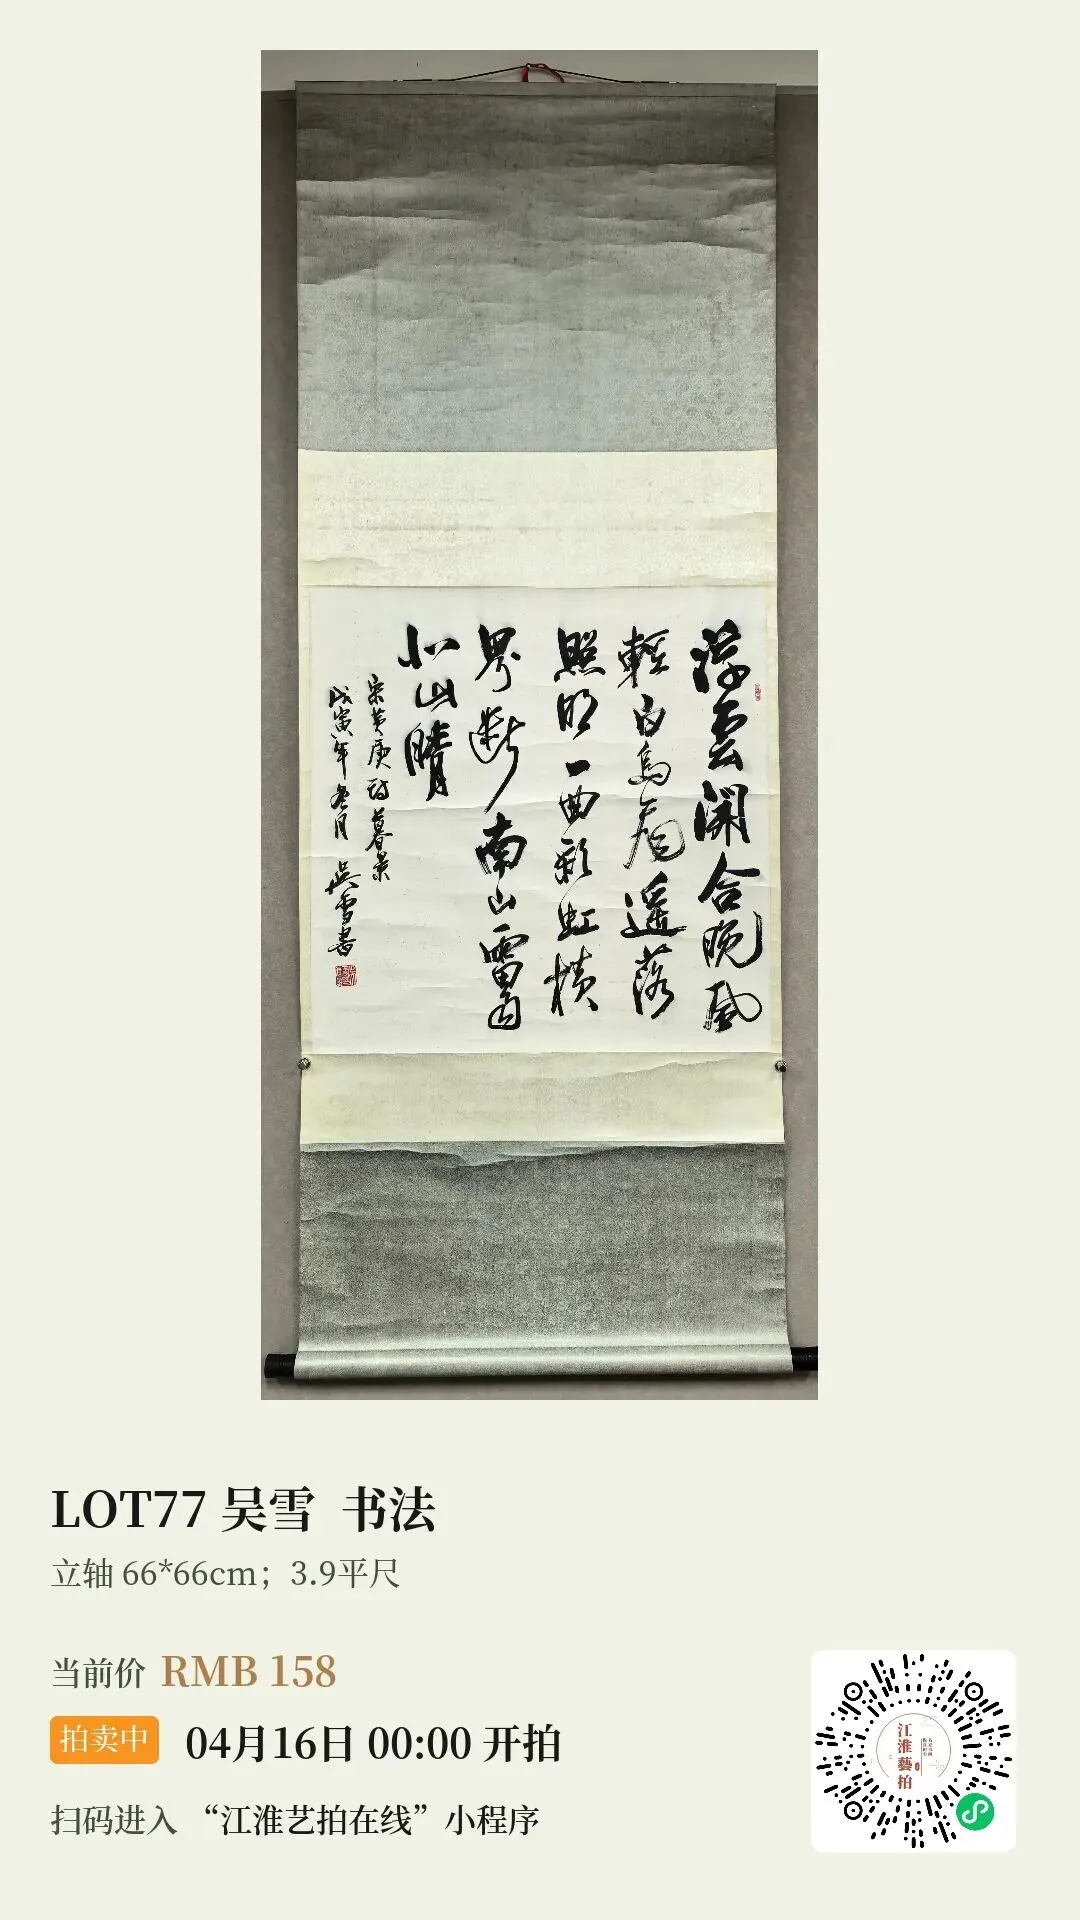 浮雲開合晚風
輕白鳥飛邊落
照明一曲彩虹橫
界斷南山雷雨
北山晴
宋黃庚詩暮景
戊寅年冬月 吳雪書
LOT77 吴雪 书法
立轴 66*66cm；3.9平尺
当前价 RMB 158
拍卖中 04月16日 00:00 开拍
扫码进入 “江淮艺拍在线”小程序
江淮藝拍